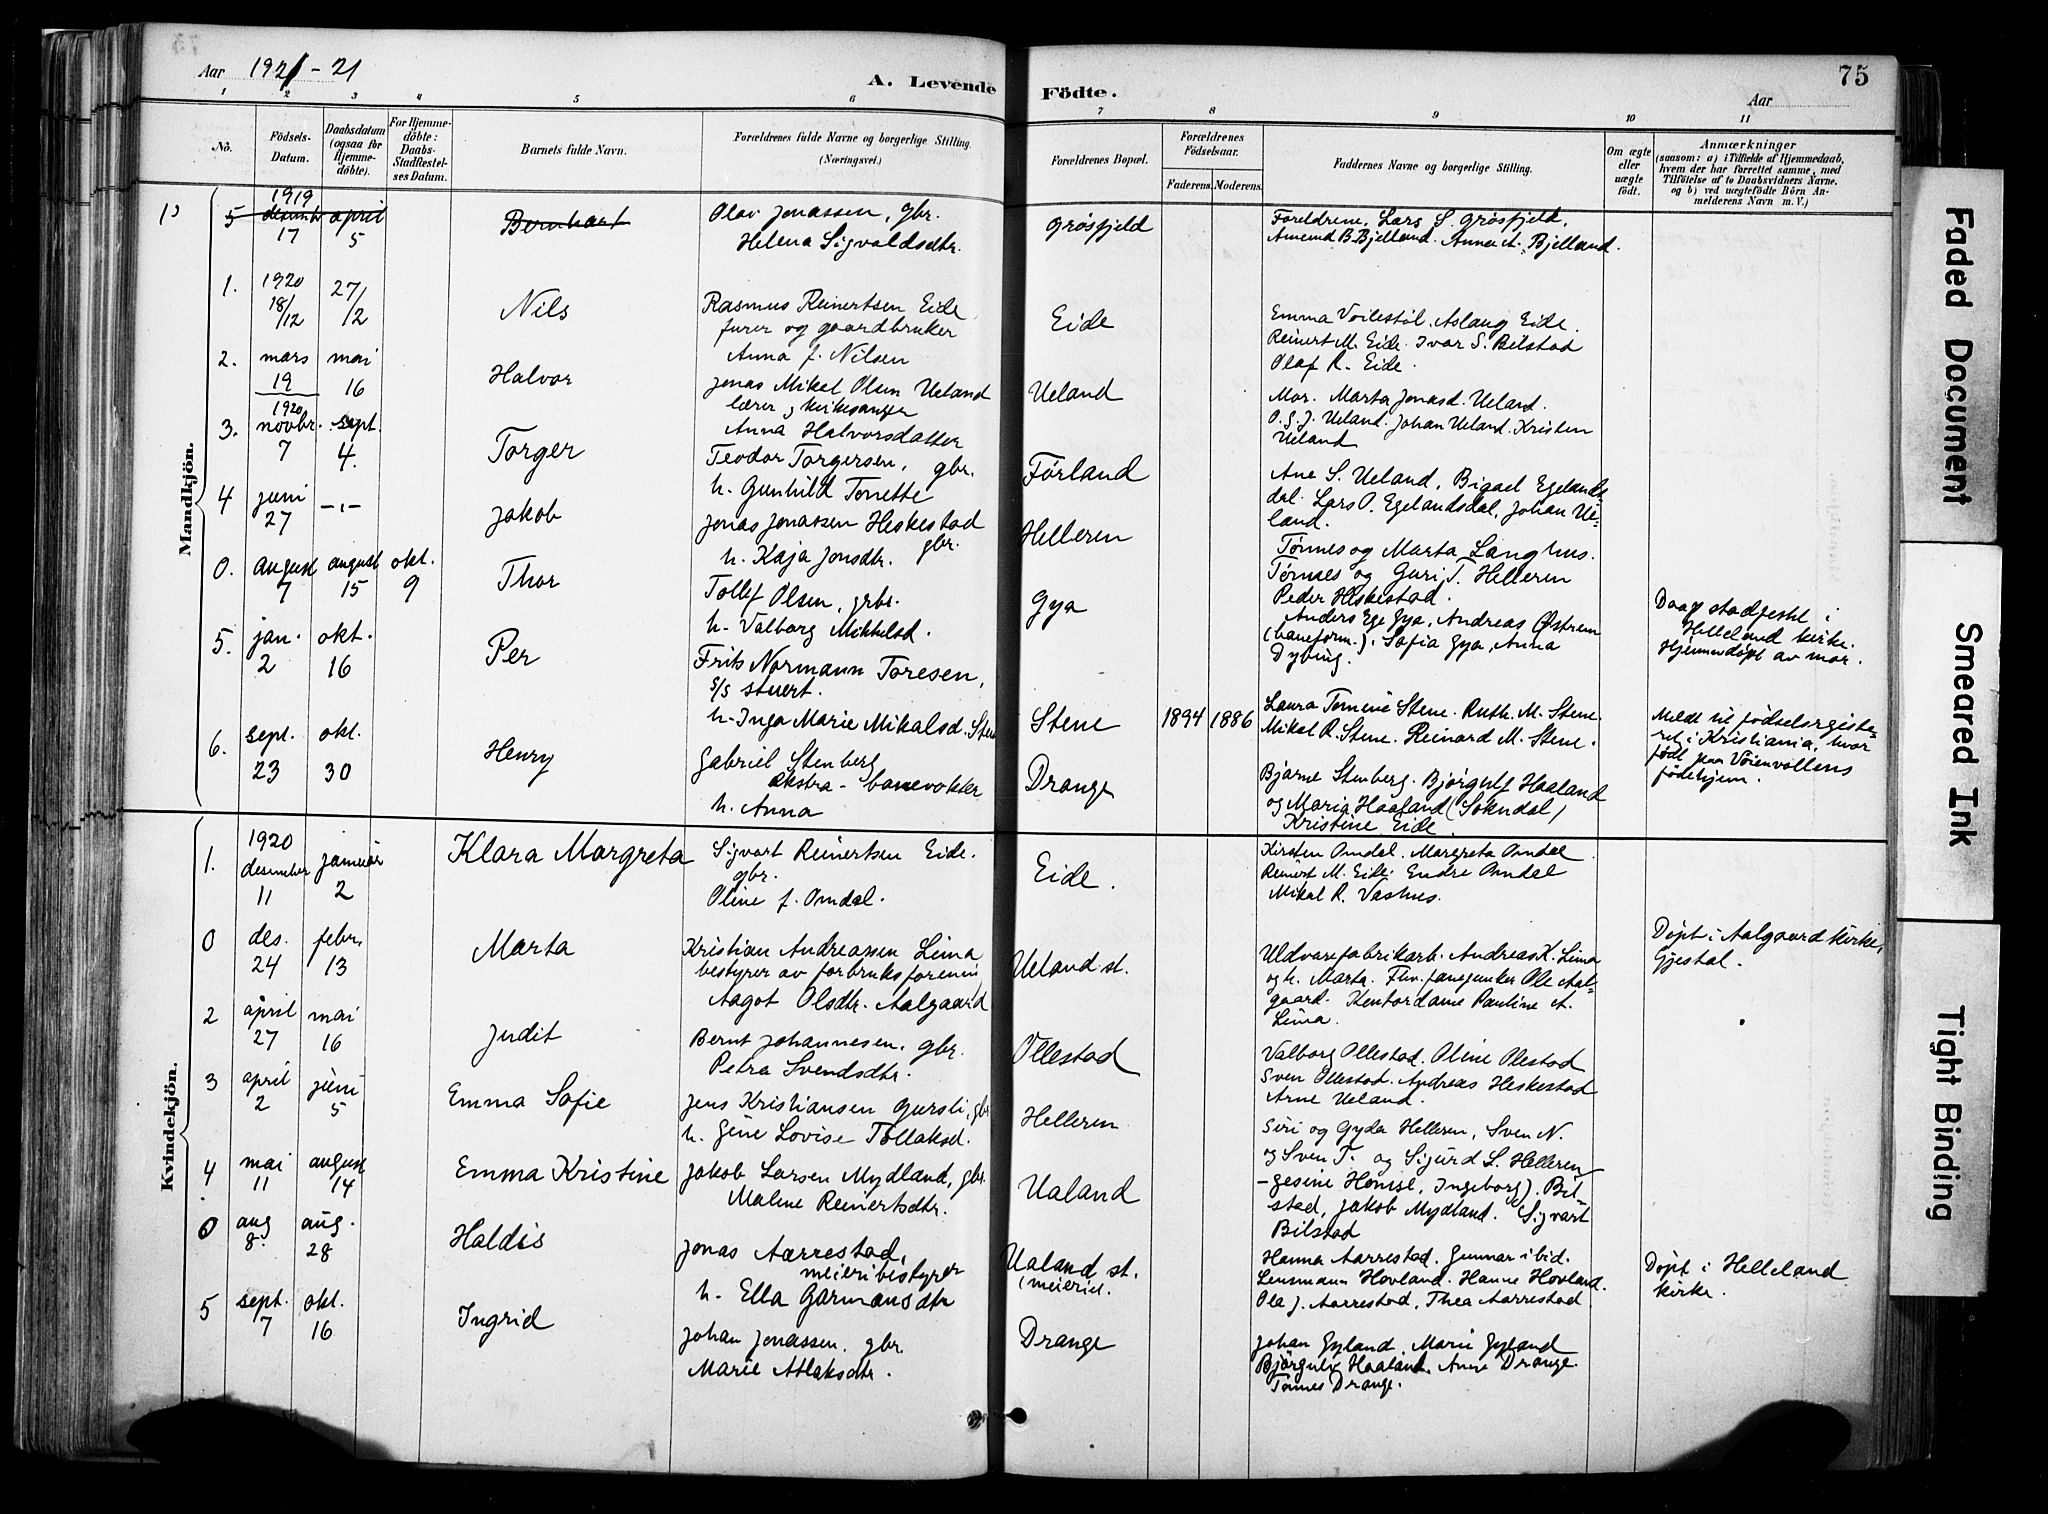 Aar 1921-21
A. Levende Födte.
Aar
75
1 2 3 4 5 6 7 8 9 10 11
No.
Födsels-Datum.
Daabsdatum (ogsaa for Hjemmedöbte).
For Hjemmedöbte: Daabs-Stadfæstelses Datum.
Barnets fulde Navn.
Forældrenes fulde Navne og borgerlige Stilling. (Næringsvei.)
Forældrenes Bopæl.
Forældrenes Födselsaar.
Faderens. Moderens.
Faddernes Navne og borgerlige Stilling.
Om ægte eller uægte födt.
Anmærkninger (saasom: a) i Tilfælde af Hjemmedaab, hvem der har forrettet samme, med Tilföielse af to Daabsvidners Navne, og b) ved uægtefödte Börn Anmelderens Navn m. V.)
Mandkjön.
5 1919 desembr 17 april 5 Bernhart
Olav Jonassen, gbr.
Helena Sigvaldsdtr.
Grøsfjeld
Foreldrene, Lars S. Grøsfjeld,
Amund B. Bjelland. Anna A. Bjelland.
1. 1920 18/12 27/2 Nils
Rasmus Reinertsen Eide
furer og gaardbruker
Anna f. Nilsen
Eide
Emma Voilestøl. Aslaug Eide.
Reinert M. Eide. Ivar S. Bilstad
Olaf R. Eide.
2. mars 19 mai 16 Halvor
Jonas Mikal Olsen Ueland
lærer, kirkesanger
Anna Halvorsdatter
Ueland
Mor. Marta Jonasd. Ueland.
O. S. J. Ueland. Johan Ueland. Kristen
Ueland
3. 1920 novbr. 7 sept. 4. Torger
Teodor Torgersen, gbr.
h. Gunhild Tonette
Førland
Ane S. Ueland, Bigael Egelands-
dal. Lars O. Egelandsdal, Johan Ue-
land.
4 juni 27 -"- Jakob
Jonas Jonassen Heskestad gbr.
h. Kaja Jonsdtr.
Helleren
Tønnes og Marta Langhus.
Tønnes og Guri T. Helleren
Peder Heskestad.
0. august 7 august 15 okt. 9 Thor
Tollef Olsen, grbr.
h. Valborg Mikkelsd.
Gya
Anders Ege Gya, Andreas Østrem
(baneform.). Sofia Gya, Anna
Dybing.
Daap stadfestet i
Helleland kirke.
Hjemmedøpt av mor.
5. jan. 2 okt. 16 Per
Frits Normann Toresen,
s/s stuert.
h. Inga Marie Mikalsd. Stene
Stene 1894 1886
Laura Tomine Stene. Ruth. M. Stene.
Mikal R. Stene. Reinard M. Stene.
Meldt til fødselsregiste-
ret i Kristiania, hvor
født paa Vøienvollens
fødehjem.
6. sept. 23 okt. 30 Henry
Gabriel Stenberg
ekstra-banevokter
h. Anna
Drange
Bjarne Stenberg. Bjørgulf Haaland
og Maria Haaland (Sokndal)
Kristine Eide
Kvindekjön.
1. 1920 desember 11 januar 2 Klara Margreta
Sigvart Reinertsen Eide.
gbr.
Oline f. Omdal.
Eide.
Kirsten Omdal. Margreta Omdal
Reinert M. Eide. Endre Omdal
Mikal R. Vashus.
0 des. 24 febr. 13 Marta
Kristian Andreassen Lima
bestyrer av forbruksforenin
Aagot Olsdtr. Aalgaard
Ueland st.
Uldvarefabrikarb. Andreas K. Lima
og h. Marta. Fhv. fanejunker Ole Aal-
gaard. Kontordame Pauline A.
Lima.
Døpt i Aalgaard kirke,
Gjestal.
2 april 27 mai 16 Judit
Bernt Johannesen, gbr.
Petra Svendsdtr.
Ollestad
Valborg Ollestad. Oline Olestad
Sven Ollestad. Andreas Heskestad
Arne Ueland.
3 april 2 juni 5 Emma Sofie
Jens Kristiansen Gursli, gbr
h. Gine Lovise Tollaksd.
Helleren
Siri og Gyda Helleren, Sven N.
og Sven T. og Sigurd L. Helleren
4 mai 11 august 14 Emma Kristine
Jakob Larsen Mydland, gbr.
Malene Reinertsdtr.
Ualand
Gesine Homse, Ingeborg J. Bil-
stad, Jakob Mydland. Sigvart
Bilstad
0 aug 8. aug. 28 Haldis
Jonas Aarrestad,
meieribestyrer
h. Ella Garmansdtr
Ualand st.
(meieriet.
Hanna Aarrestad. Gunnar ibid.
Lensmann Hovland. Hanne Hovland.
Ola J. Aarrestad, Thea Aarrestad
Døpt i Helleland
kirke.
5 sept. 7 okt. 16 Ingrid
Johan Jonassen, gbr.
Marie Atlaksdtr.
Drange
Johan Gyland. Marie Gyland
Bjørgulv Haaland. Anne Drange
Tønnes Drange.
Faded Document
Smeared Ink
Tight Binding